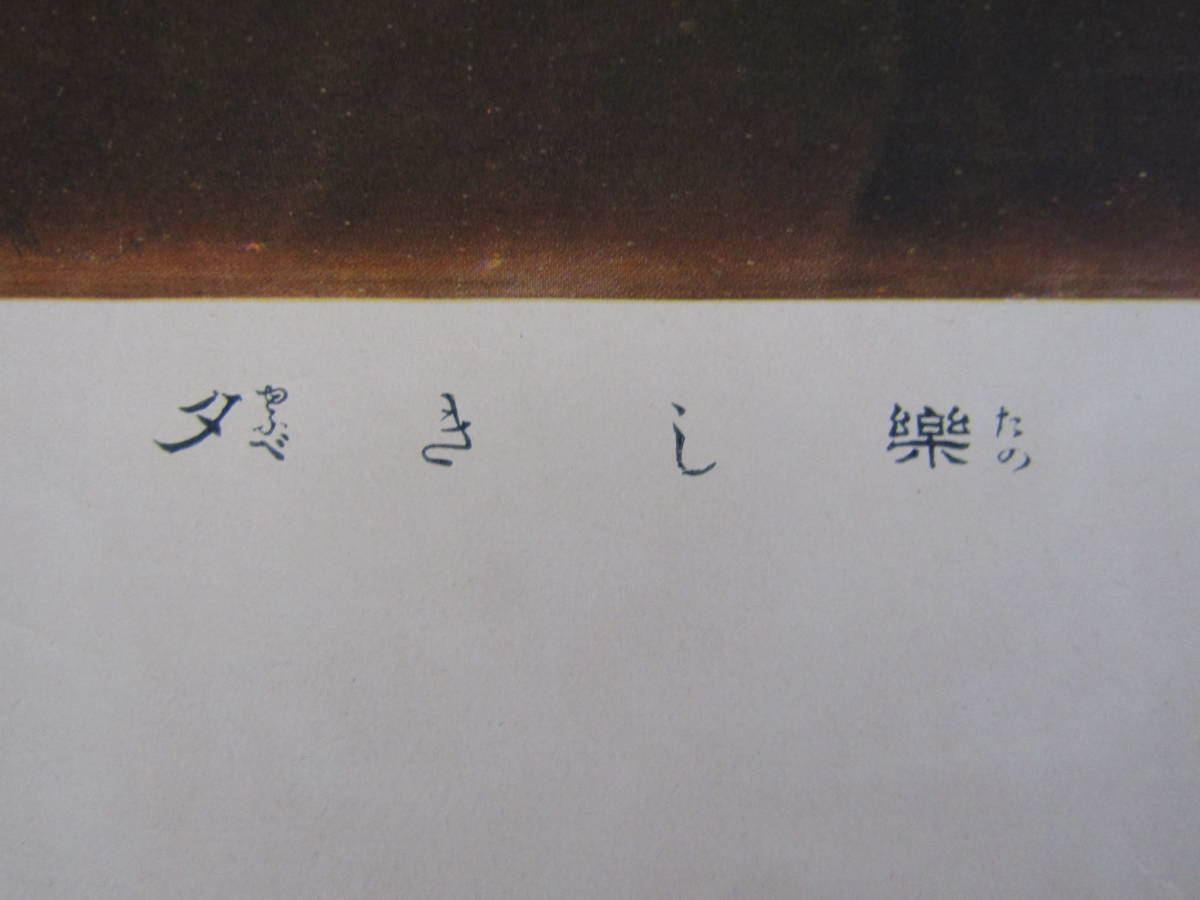 樂しき夕
たの ゆふべ